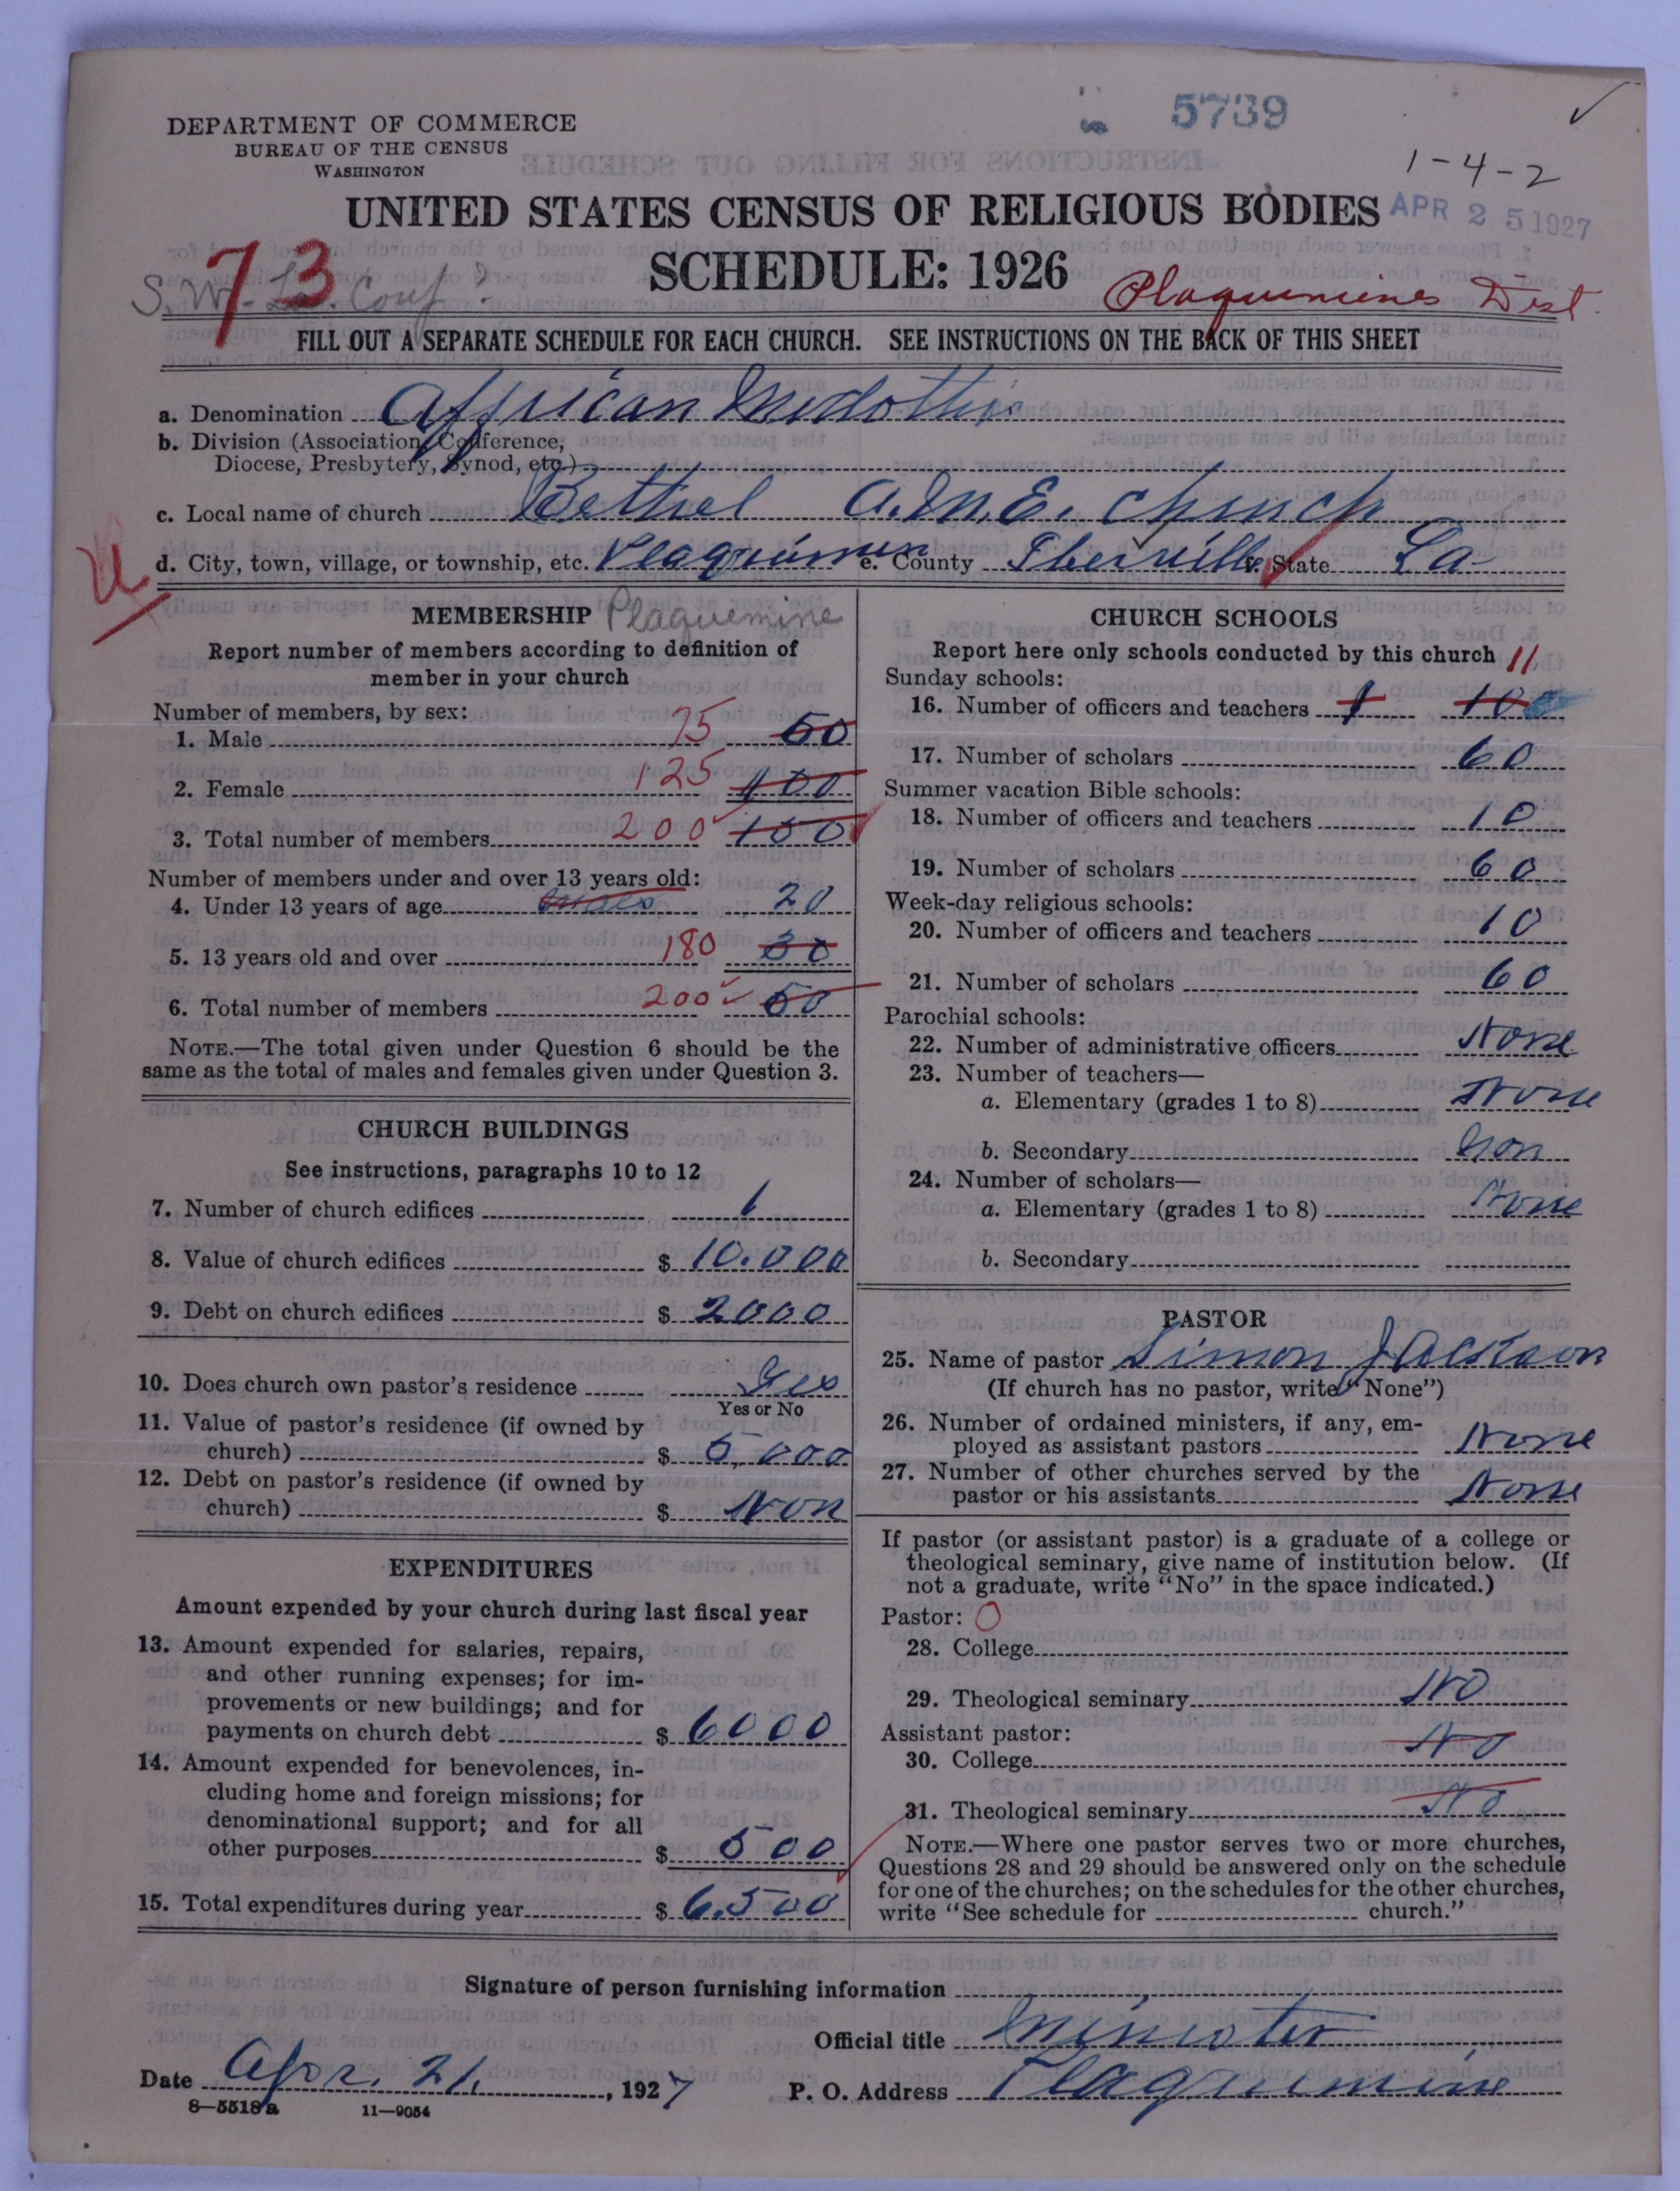 5739
DEPARTMENT OF COMMERCE
BUREAU OF THE CENSUS
WASHINGTON
1-4-2
UNITED STATES CENSUS OF RELIGIOUS BODIES
APR 25 1927
SCHEDULE: 1926
73
S. W. La. Conf?
Plaquemines Dist.
FILL OUT A SEPARATE SCHEDULE FOR EACH CHURCH. SEE INSTRUCTIONS ON THE BACK OF THIS SHEET
a. Denomination African Methodis
b. Division (Association, Conference,
Diocese, Presbytery, Synod, etc.)
c. Local name of church Bethel A.M.E. Church
d. City, town, village, or township, etc. Plaquimen e. County Iberville State La
MEMBERSHIP Plaquemine
Report number of members according to definition of
member in your church
Number of members, by sex:
1. Male 75 50
2. Female 125 100
3. Total number of members 200 150
Number of members under and over 13 years old:
4. Under 13 years of age 20
5. 13 years old and over 180 30
6. Total number of members 200 50
NOTE.—The total given under Question 6 should be the
same as the total of males and females given under Question 3.
CHURCH BUILDINGS
See instructions, paragraphs 10 to 12
7. Number of church edifices 1
8. Value of church edifices $ 10.000
9. Debt on church edifices $ 2000
10. Does church own pastor's residence Yes
Yes or No
11. Value of pastor's residence (if owned by
church) $ 5,000
12. Debt on pastor's residence (if owned by
church) $ Non
EXPENDITURES
Amount expended by your church during last fiscal year
13. Amount expended for salaries, repairs,
and other running expenses; for im-
provements or new buildings; and for
payments on church debt $ 6000
14. Amount expended for benevolences, in-
cluding home and foreign missions; for
denominational support; and for all
other purposes $ 500
15. Total expenditures during year $ 6.500
CHURCH SCHOOLS
Report here only schools conducted by this church
Sunday schools: 11
16. Number of officers and teachers 1 10
17. Number of scholars 60
Summer vacation Bible schools:
18. Number of officers and teachers 10
19. Number of scholars 60
Week-day religious schools:
20. Number of officers and teachers 10
21. Number of scholars 60
Parochial schools:
22. Number of administrative officers None
23. Number of teachers—
a. Elementary (grades 1 to 8) None
b. Secondary Non
24. Number of scholars—
a. Elementary (grades 1 to 8) None
b. Secondary
PASTOR
25. Name of pastor Simon Jackson
(If church has no pastor, write "None")
26. Number of ordained ministers, if any, em-
ployed as assistant pastors None
27. Number of other churches served by the
pastor or his assistants None
If pastor (or assistant pastor) is a graduate of a college or
theological seminary, give name of institution below. (If
not a graduate, write "No" in the space indicated.)
Pastor: O
28. College
29. Theological seminary No
Assistant pastor:
30. College No
31. Theological seminary No
NOTE.—Where one pastor serves two or more churches,
Questions 28 and 29 should be answered only on the schedule
for one of the churches; on the schedules for the other churches,
write "See schedule for church."
Signature of person furnishing information
Official title Minister
Date Apr. 21, 1927
P. O. Address Plaqumine
8—5518a 11—9054